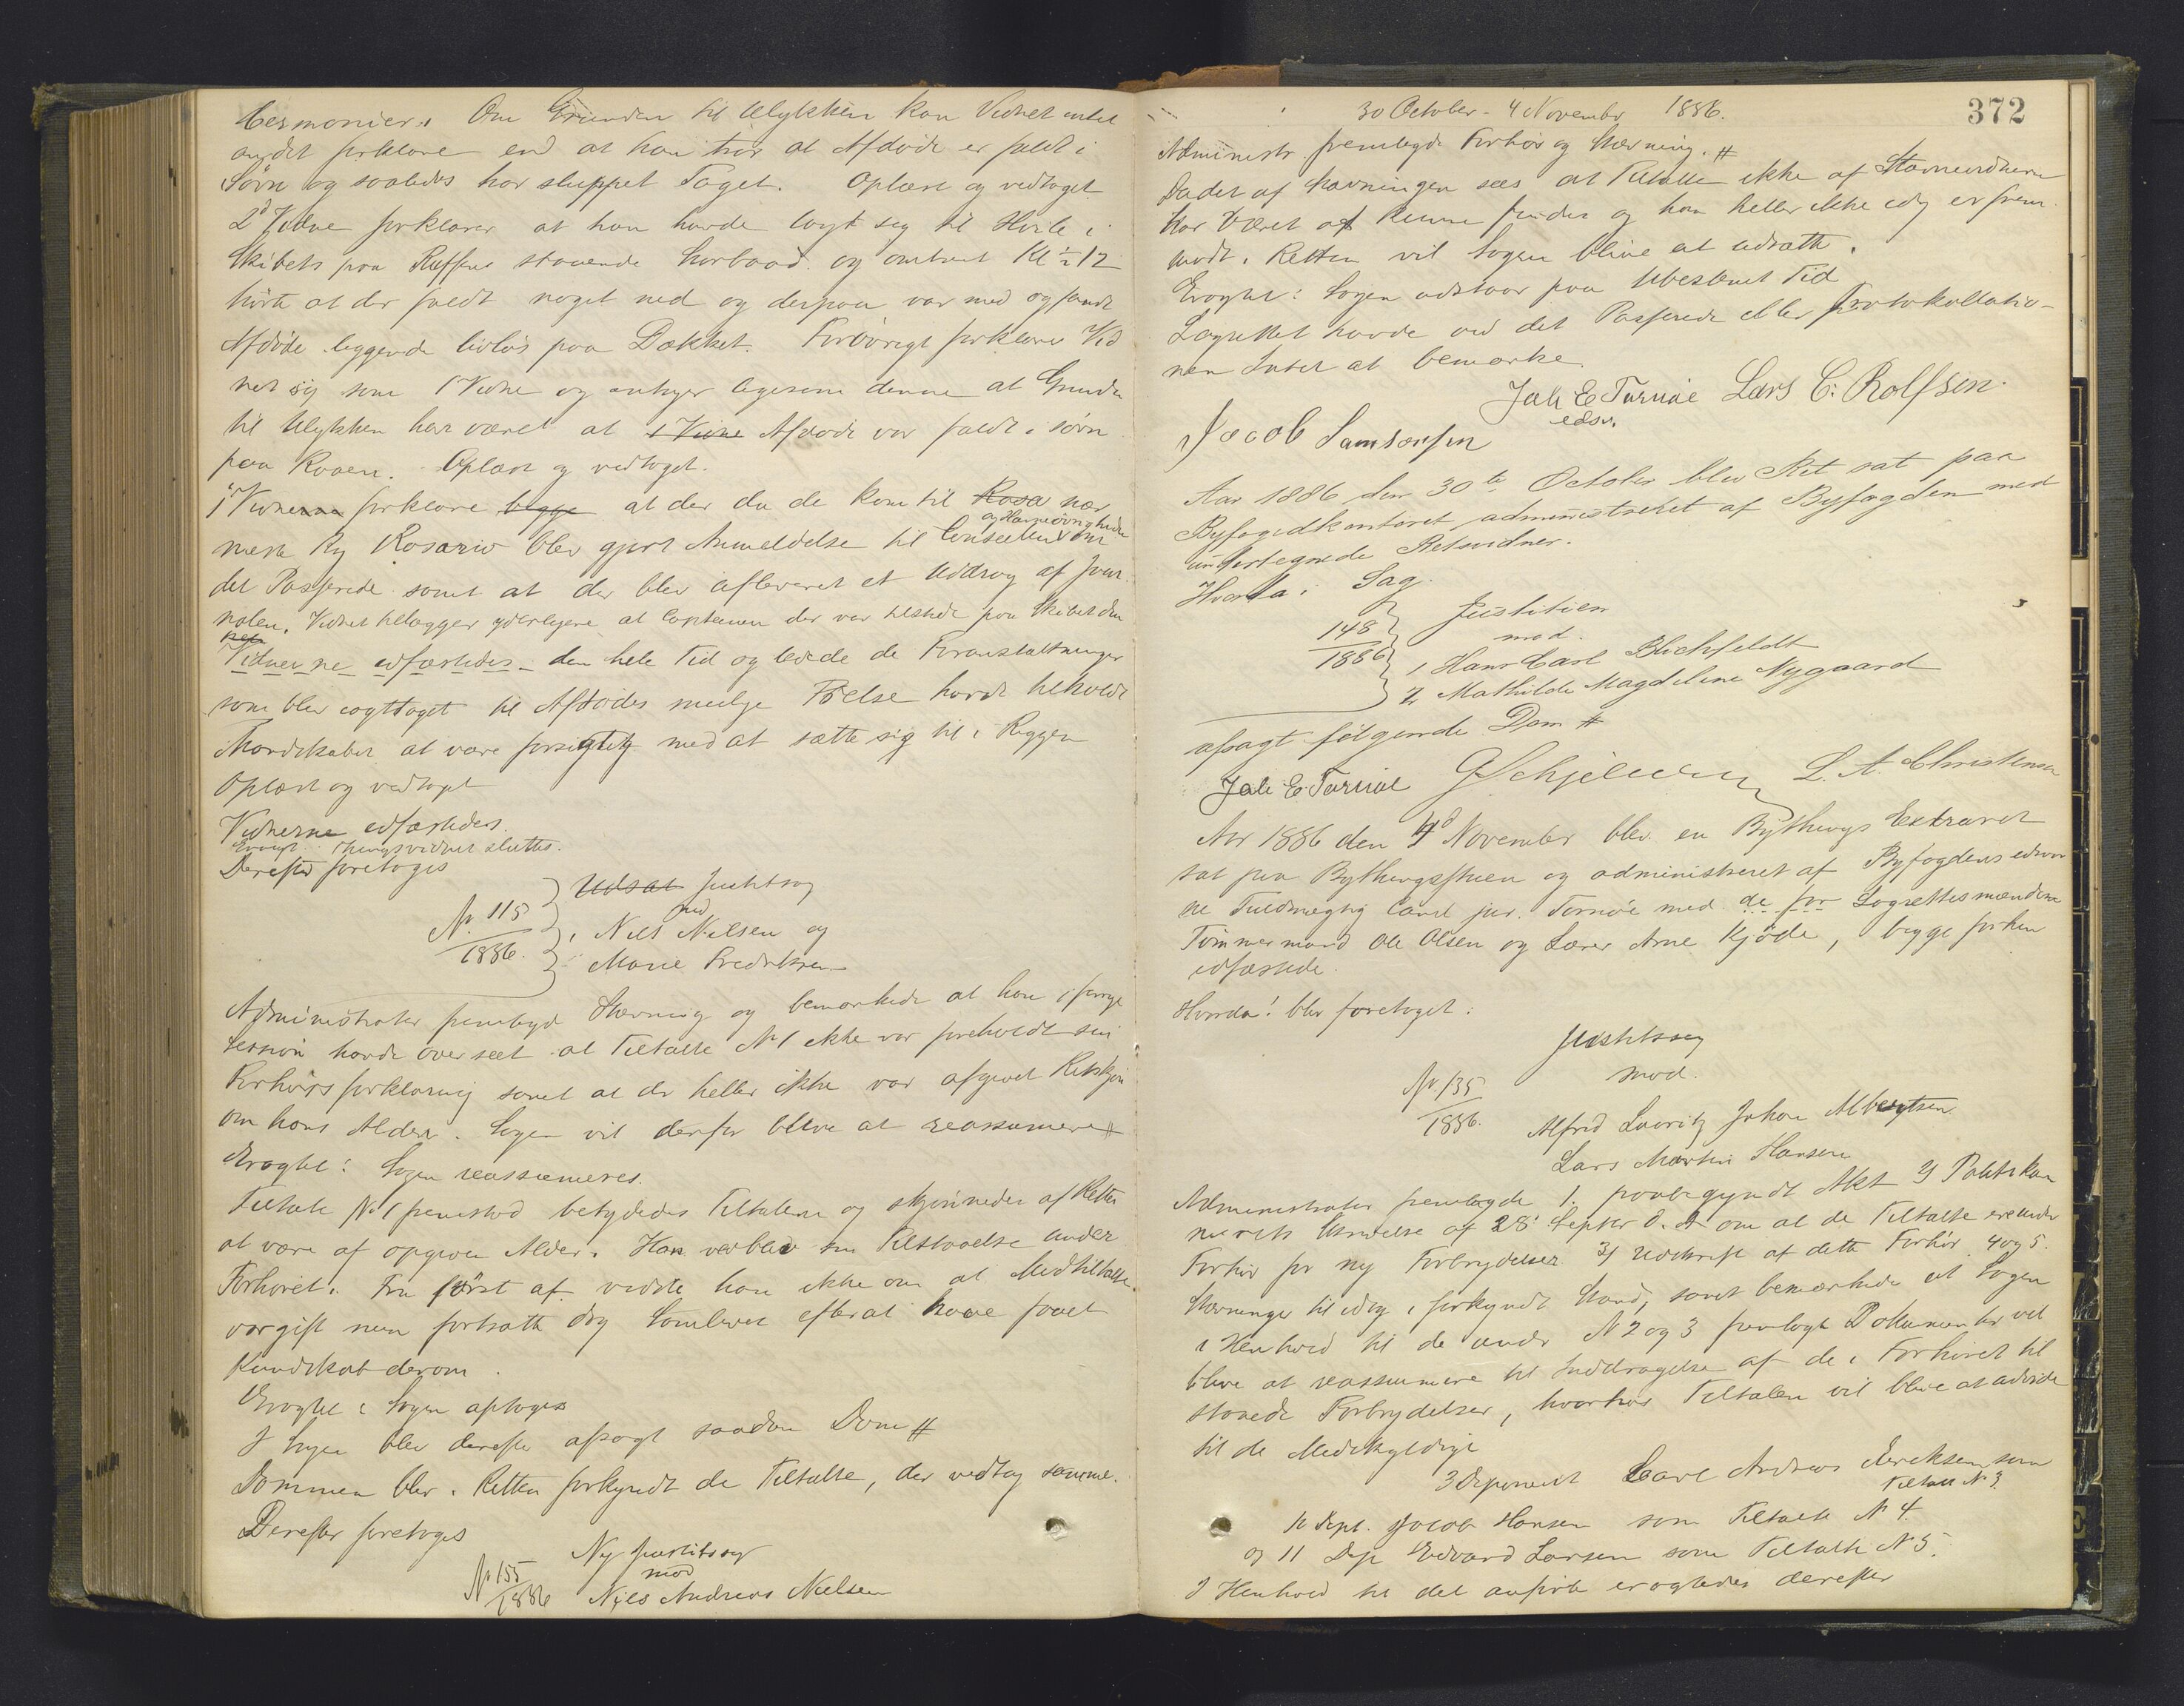 Cermonier. Om Grunden til Ulykken kan Vidnet intet
andet forklare end at han tror at Afdøde er faldt i
Søvn og saaledes har sluppet Taget. Oplæst og vedtaget
2d Vidne forklarer at han havde lagt sig til Hvile i
Skibets paa Ruffen staaende Storbaad og omtrent Kl ½12
hørte at der faldt noget ned og derpaa var med og fandt
Afdøde liggende livløs paa Dækket. Forøvrigt forklarer Vid
net sig som 1 Vidne og antager ligesom denne at Grunden
til Ulykken har været at 1 Vidne Afdøde var faldt i søvn
paa Raaen. Oplæst og vedtaget.
1 Vidnerne forklare begge at der da de kom til Rosa nær
og Havneøvrigheden
meste By Rosario blev gjort Anmeldelse til Consulen om
det Passerede samt at der blev afleveret et Uddrag af Jour
nalen. Vidnet tilægger yderligere at Captainen der var tilstede paa Skibet den
Vidnerne edfæstedes den hele Tid og ledede de Foranstaltninger
som blev iagttaget til Afdødes mulige Frelse havde tilholdt
Mandskabet at være forsigtig med at sætte sig til i Riggen
Oplæst og vedtaget
Vidnerne edfæstedes.
Eragt: Thingsvidnet sluttes.
Derefter foretoges
No. 115
1886.
Udsat Justitssag
mod
1 Niels Nielsen og
2 Marie Fredriksen
Administrator fremlagde Stævning og bemærkede at han i forrige
session havde overseet at Tiltalte No 1 ikke var foreholdt sin
Forhørsforklaring samt at der heller ikke var afgivet Retskjøn
om hans Alder. Sagen vil derfor blive at reassumere #
Eragtet: Sagen reassumeres.
Tiltalte No 1 fremstod betydedes Tiltalen og skjønnedes af Retten
at være af opgiven Alder. Han vedblev sin Tilstaaelse under
Forhøret. Fra først af vidste han ikke om at Medtiltalte
var gift men fortsatte dog Samlivet efterat have faaet
Kundskab derom.
Eragtet: Sagen optages
I Sagen blev derefter afsagt saadan Dom #
Dommen blev i Retten forkyndt de Tiltalte, der vedtog samme.
Derefter foretoges
Ny Justitssag
mod
No 155
1886
Niels Andreas Nielsen
30 October - 4 November 1886.
372
Administr. fremlagde Forhør og Stævning. #
Dadet af Stævningen sees at Tiltalte ikke af Stævnevidnerne
har været at kunne findes og han heller ikke idag er frem
mødt i Retten vil Sagen blive at udsætte.
Eragtet: Sagen udstaar paa Ubestemt Tid
Lagrettet havde ved det Passerede eller Protokollatio-
nen Intet at bemærke
Joh E Tornöe Lars C. Rolfsen.
edsv.
Jacob Samsonsen
Aar 1886 den 30te October blev Ret sat paa
Byfogedkontoret administreret af Byfogden med
undertegnede Retsvidner.
Hvorda i Sag.
148
1886
Justitien
mod.
1 Hans Carl Blichfeldt
2 Mathilde Magdelene Nygaard
afsagt følgende Dom #
Joh E. Tornöe G Schjelderup L. A. Christensen
Aar 1886 den 4d November blev en Bythings Extraret
sat paa Bythingsstuen og administreret af Byfogdens edsvor
ne Fuldmægtig Cand jur. Tornøe med de for Lagrettesmændene
Tømmermand Ole Olsen og Lærer Arne Kjøde, begge forhen
edfæstede.
Hvorda! blev foretaget:
Justitssag
mod.
No. 135
1886.
Alfred Lauritz Johan Albergtsen
Lars Martin Hansen
Administrator fremlagde 1. paabegyndt Akt 2) Politikam
merets Skrivelse af 28' Septbr d. A om at de Tiltalte ere under
Forhør for ny Forbrydelser 3) Udskrift af dette Forhør 4 og 5.
Stævninger til idag i forkyndt Stand, samt bemærkede at Sagen
i Henhold til de under No 2 og 3 fremlagte Dokumenter vil
blive at reassumere til Inddragelse af de i Forhøret til
staaede Forbrydelser, hvorhos Tiltalen vil blive at udvide
til de Medskyldige
3 Deponent Carl Andreas Eriksen som
Tiltalt No 3
10 Dept. Jacob Hansen som Tiltalte No 4.
og 11 Dep Edvard Larsen som Tiltalte No 5.
I Henhold til det anførte eragtedes derefter